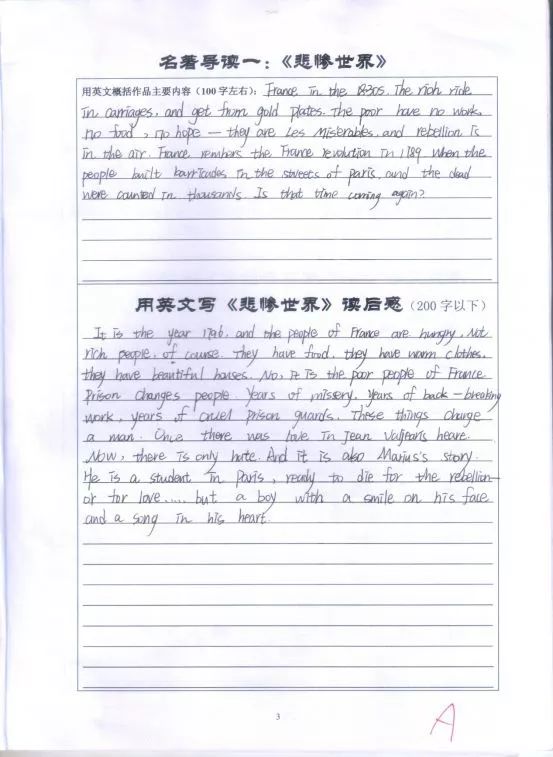 名著导读一：《悲惨世界》
用英文概括作品主要内容（100字左右）： France in the 1830s. The rich ride
in carriages, and get from gold plates. The poor have no work,
no food, no hope — they are Les Miserables. and rebellion is
in the air. France rembers the France revolution in 1789 when the
people built barricades in the streets of paris, and the dead
were counted in thousands. Is that time coming again?
用英文写《悲惨世界》读后感（200字以下）
It is the year 1796, and the people of France are hungry. Not
rich people, of course. They have food, they have warm clothes.
they have beautiful houses. No, it is the poor people of France.
Prison changes people. Years of missery. Years of back-breaking
work, years of cruel prison guards. These things change
a man. Once there was love in Jean Valjean's heare.
Now, there is only hate. And it is also Marius's story.
He is a student in Paris, ready to die for the rebellion
or for love..... but a boy with a smile on his face
and a song in his heart.
3
A